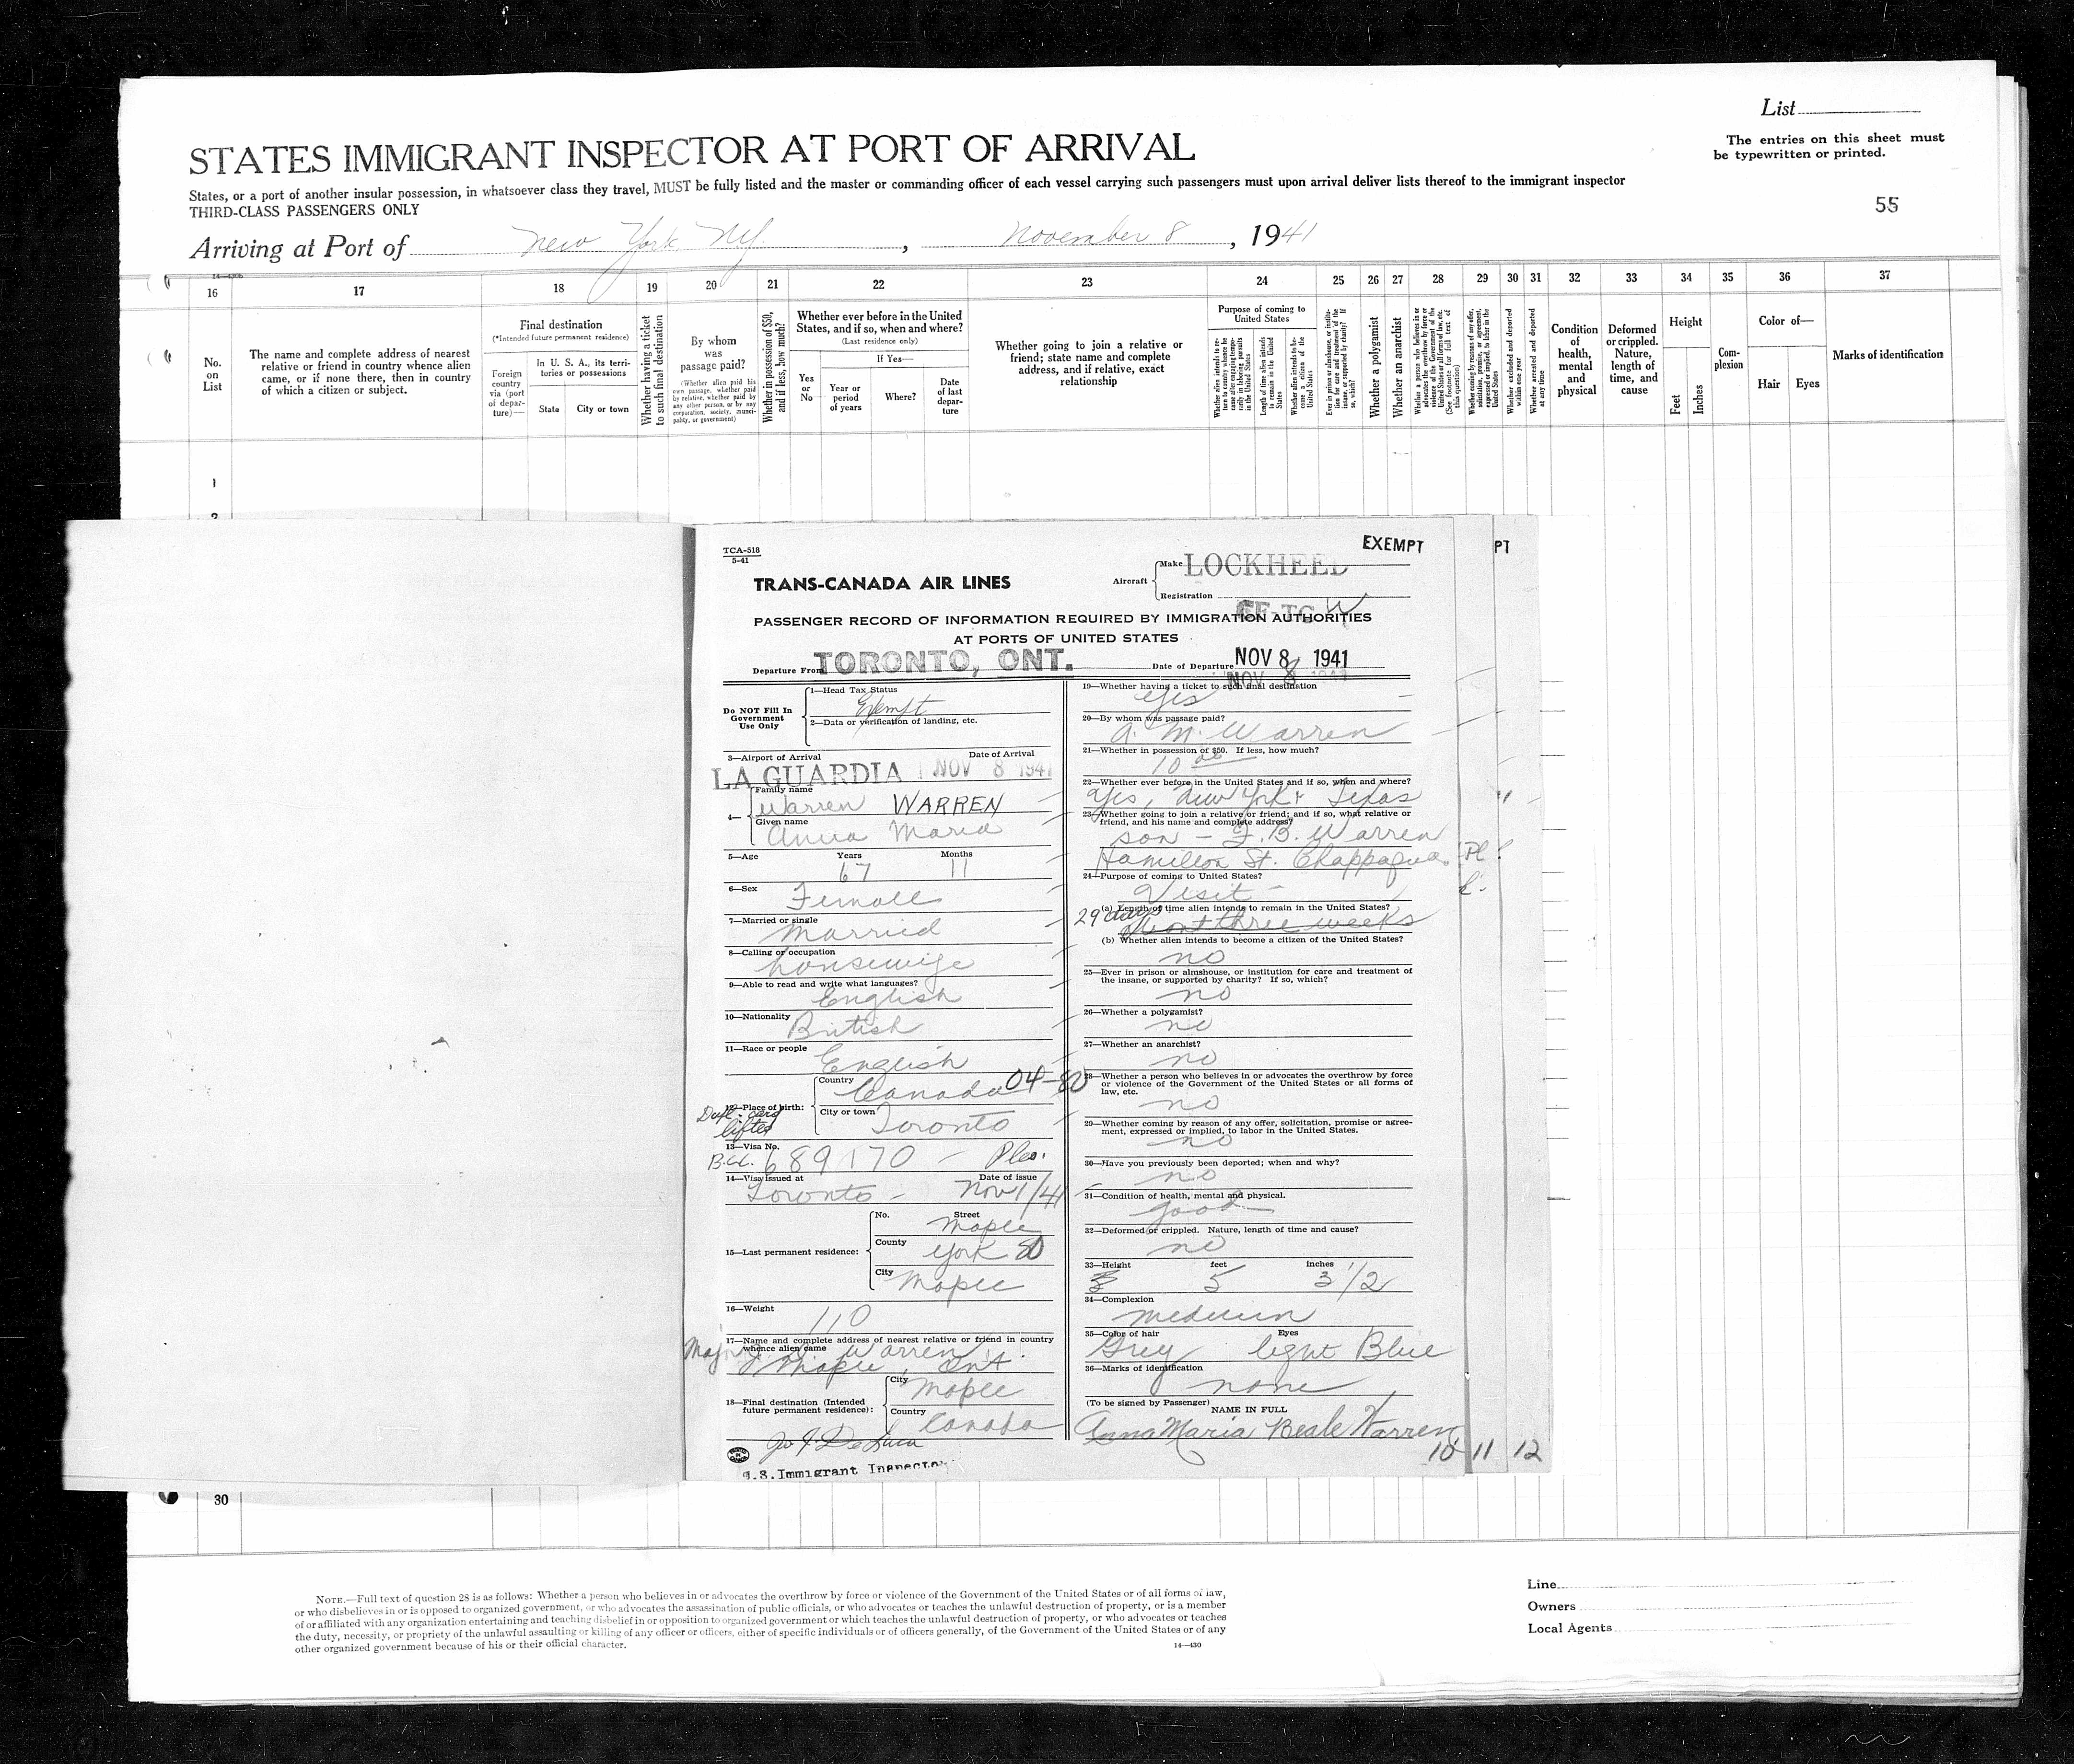 List
The entries on this sheet must
be typewritten or printed.
STATES IMMIGRANT INSPECTOR AT PORT OF ARRIVAL
States, or a port of another insular possession, in whatsoever class they travel, MUST be fully listed and the master or commanding officer of each vessel carrying such passengers must upon arrival deliver lists thereof to the immigrant inspector
THIRD-CLASS PASSENGERS ONLY
55
Arriving at Port of New York, NY. , November 8, 1941
16 17 18 19 20 21 22 23 24 25 26 27 28 29 30 31 32 33 34 35 36 37
No. on List
The name and complete address of nearest
relative or friend in country whence alien
came, or if none there, then in country
of which a citizen or subject.
Final destination
(*Intended future permanent residence)
Foreign country via (port of departure)—
In U. S. A., its territories or possessions
State
City or town
Whether having a ticket to such final destination
By whom was passage paid?
(Whether alien paid his own passage, whether paid by relative, whether paid by any other person, or by any corporation, society, municipality, or government)
Whether in possession of $50, and if less, how much?
Whether ever before in the United
States, and if so, when and where?
(Last residence only)
Yes or No
If Yes—
Year or period of years
Where?
Date of last departure
Whether going to join a relative or
friend; state name and complete
address, and if relative, exact
relationship
Purpose of coming to
United States
Whether alien intends to return to country whence he came after engaging temporarily in laboring pursuits in the United States
Length of time alien intends to remain in the United States
Whether alien intends to become a citizen of the United States
Ever in prison or almshouse, or institution for care and treatment of the insane, or supported by charity? If so, which?
Whether a polygamist
Whether an anarchist
Whether a person who believes in or advocates the overthrow by force or violence of the Government of the United States or all forms of law, etc. (See footnote for full text of this question)
Whether coming by reason of any offer, solicitation, promise, or agreement, expressed or implied, to labor in the United States
Whether excluded and deported within one year
Whether arrested and deported at any time
Condition of health, mental and physical
Deformed or crippled. Nature, length of time, and cause
Height
Feet
Inches
Complexion
Color of—
Hair
Eyes
Marks of identification
1
2
TCA-518
5-41
EXEMPT
PT
TRANS-CANADA AIR LINES
Aircraft
Make LOCKHEED
Registration CF-TC W
PASSENGER RECORD OF INFORMATION REQUIRED BY IMMIGRATION AUTHORITIES
AT PORTS OF UNITED STATES
Departure From TORONTO, ONT. Date of Departure NOV 8 1941
NOV 8 1941
Do NOT Fill In Government Use Only
1—Head Tax Status
Exempt
2—Data or verification of landing, etc.
3—Airport of Arrival Date of Arrival
LA GUARDIA NOV 8 1941
4—
Family name
Warren WARREN
Given name
Anna Maria
5—Age Years Months
67 11
6—Sex
Female
7—Married or single
Married
8—Calling or occupation
housewife
9—Able to read and write what languages?
English
10—Nationality
British
11—Race or people
English
12—Place of birth:
Country
Canada 04-80
City or town
Toronto
Dupl. card
lifted
13—Visa No.
B.C. 689170 — Pleo.
14—Visa issued at Date of issue
Toronto - Nov 1/41
15—Last permanent residence:
No. Street
Maple
County
York 80
City
Maple
16—Weight
110
17—Name and complete address of nearest relative or friend in country
whence alien came
Warren
Maple, Ont.
18—Final destination (Intended
future permanent residence):
City
Maple
Country
Canada
U.S. Immigrant Inspector
19—Whether having a ticket to such final destination
Yes
20—By whom was passage paid?
A. M. Warren
21—Whether in possession of $50. If less, how much?
10 00
22—Whether ever before in the United States and if so, when and where?
Yes, New York + Texas
23—Whether going to join a relative or friend; and if so, what relative or
friend, and his name and complete address?
son - F. B. Warren
Hamilton St. Chappaqua.
24—Purpose of coming to United States?
Visit -
(a) Length of time alien intends to remain in the United States?
29 days
about three weeks
(b) Whether alien intends to become a citizen of the United States?
no
25—Ever in prison or almshouse, or institution for care and treatment of
the insane, or supported by charity? If so, which?
no
26—Whether a polygamist?
no
27—Whether an anarchist?
no
28—Whether a person who believes in or advocates the overthrow by force
or violence of the Government of the United States or all forms of
law, etc.
no
29—Whether coming by reason of any offer, solicitation, promise or agree-
ment, expressed or implied, to labor in the United States.
no
30—Have you previously been deported; when and why?
no
31—Condition of health, mental and physical.
good
32—Deformed or crippled. Nature, length of time and cause?
no
33—Height feet inches
5 3 1/2
34—Complexion
medium
35—Color of hair Eyes
Grey light Blue
36—Marks of identification
none
(To be signed by Passenger)
NAME IN FULL
Anna Maria Beale Warren
10 11 12
30
NOTE.—Full text of question 28 is as follows: Whether a person who believes in or advocates the overthrow by force or violence of the Government of the United States or of all forms of law,
or who disbelieves in or is opposed to organized government, or who advocates the assassination of public officials, or who advocates or teaches the unlawful destruction of property, or is a member
of or affiliated with any organization entertaining and teaching disbelief in or opposition to organized government or which teaches the unlawful destruction of property, or who advocates or teaches
the duty, necessity, or propriety of the unlawful assaulting or killing of any officer or officers, either of specific individuals or of officers generally, of the Government of the United States or of any
other organized government because of his or their official character.
14—430
Line
Owners
Local Agents